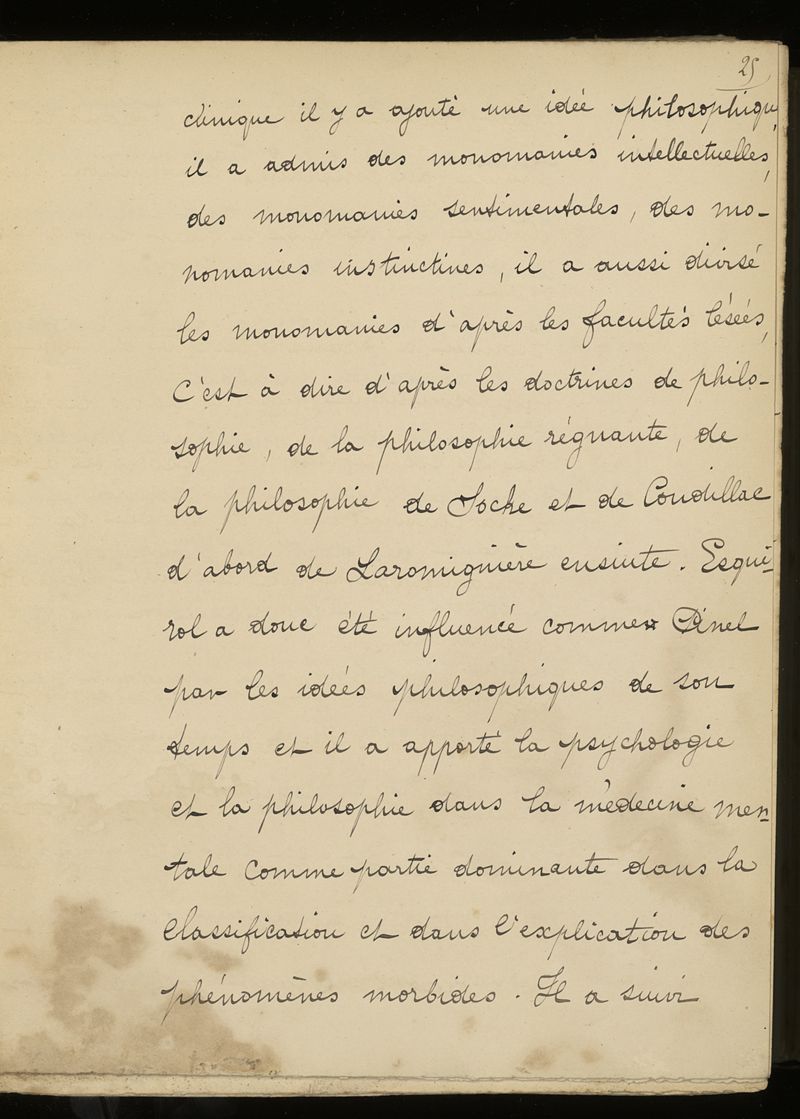 25
clinique il y a ajouté une idée philosophique,
il a admis des monomanies intellectuelles,
des monomanies sentimentales, des mo-
nomanies instinctives, il a aussi divisé
les monomanies d'après les facultés lésées,
C'est à dire d'après les doctrines de philo-
sophie, de la philosophie régnante, de
la philosophie de Locke et de Condillac
d'abord de Laromiguière ensuite. Esqui-
rol a donc été influencé comme Pinel
par les idées philosophiques de son
temps et il a apporté la psychologie
et la philosophie dans la médecine men-
tale comme partie dominante dans la
classification et dans l'explication des
phénomènes morbides. Il a suivi